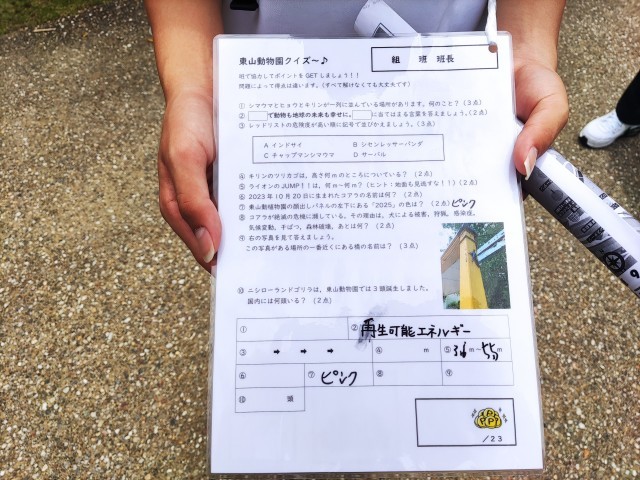 東山動物園クイズ～♪
組 班 班長
班で協力してポイントを GET しましょう！！
問題によって得点は違います。(すべて解けなくても大丈夫です)
① シマウマとヒョウとキリンが一列に並んでいる場所があります。何のこと？(3点)
② で動物も地球の未来も幸せに。 に当てはまる言葉を答えましょう。(2点)
③ レッドリストの危険度が高い順に記号で並びかえましょう。(3点)
A インドサイ B シセンレッサーパンダ
C チャップマンシマウマ D サーバル
④ キリンのツリカゴは、高さ何mのところについている？(2点)
⑤ ライオンのJUMP！！は、何m～何m？(ヒント：地面も見逃すな！！)(2点)
⑥ 2023年10月20日に生まれたコアラの名前は何？(2点)
⑦ 東山動植物園の顔出しパネルの左下にある「2025」の色は？(2点) ピンク
⑧ コアラが絶滅の危機に瀕している。その理由は、犬による被害、狩猟、感染症、
気候変動、干ばつ、森林破壊、あとは何？(2点)
⑨ 右の写真を見て答えましょう。
この写真がある場所の一番近くにある橋の名前は？(3点)
⑩ ニシローランドゴリラは、東山動物園では3頭誕生しました。
国内には何頭いる？(2点)
① ② 再生可能エネルギー
③ ➡ ➡ ➡ ④ m ⑤ m～ m
⑥ ⑦ ピンク ⑧ ⑨
⑩ 頭
/23